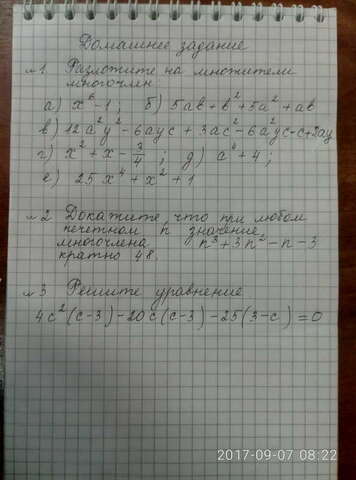 Домашнее задание
№1 Разложите на множители
многочлен
а) x⁶-1; б) 5ab+b²+5a²+ab
в) 12a²y²-6ayc+3ac²-6a²yc-c²+2ay
г) x²+x-3/4; д) a⁴+4;
е) 25x⁴+x²+1
№2 Докажите, что при любом
нечетном n значение
многочлена n³+3n²-n-3
кратно 48.
№3 Решите уравнение
4c²(c-3)-20c(c-3)-25(3-c)=0
2017-09-07 08:22